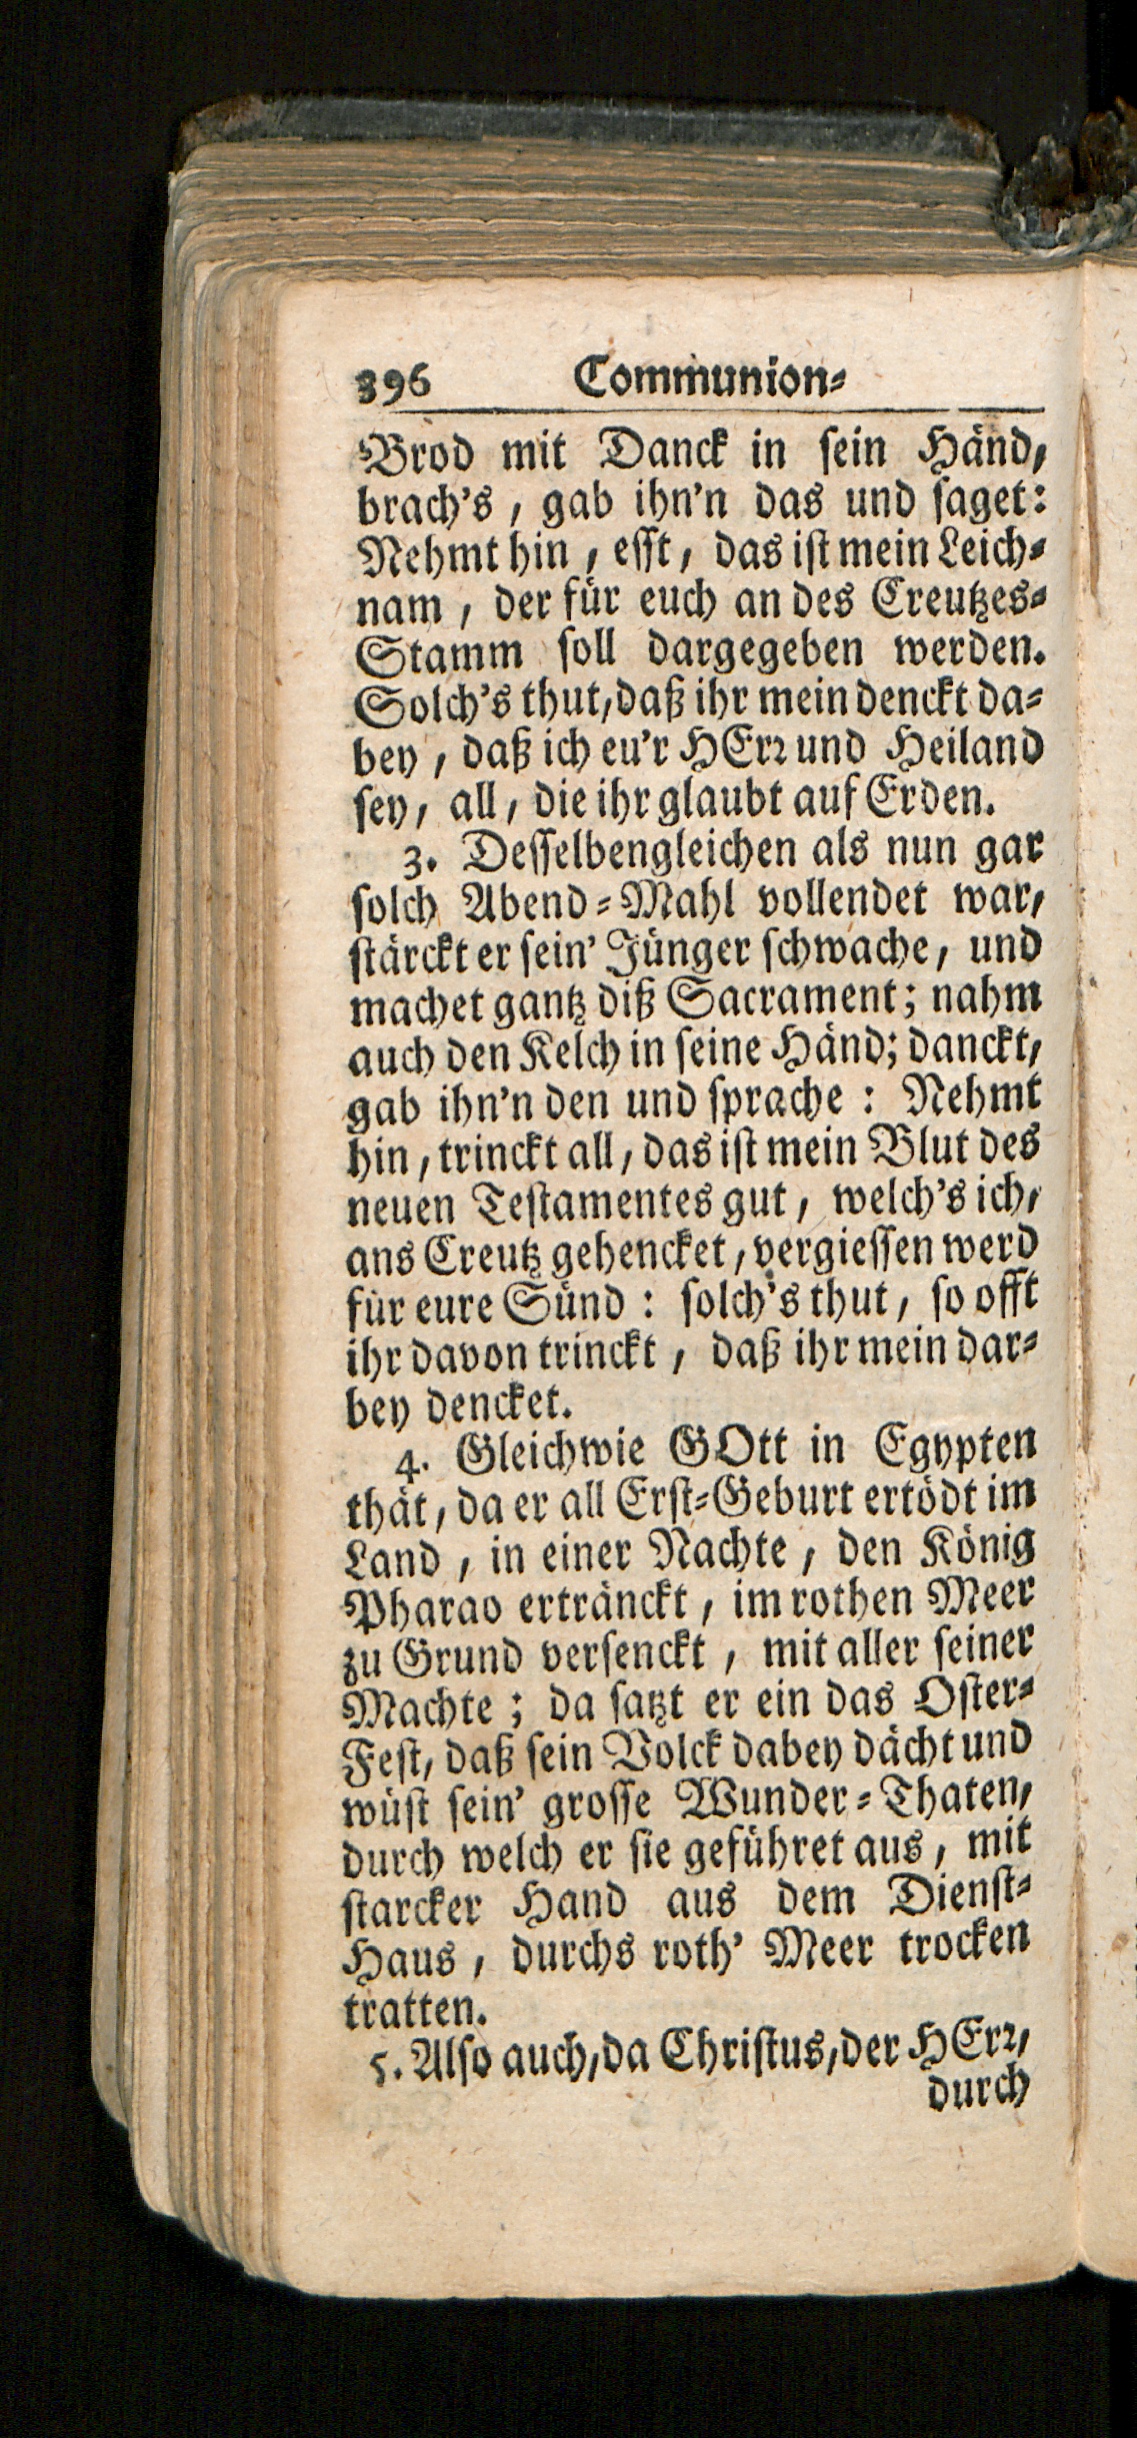 396 Communion⸗
Brod mit Danck in sein Händ,
brach's, gab ihn'n das und saget:
Nehmt hin, esst, das ist mein Leich⸗
nam, der für euch an des Creutzes⸗
Stamm soll dargegeben werden.
Solch's thut, daß ihr mein denckt da⸗
bey, daß ich eu'r HErr und Heiland
sey, all, die ihr glaubt auf Erden.
3. Desselbengleichen als nun gar
solch Abend⸗Mahl vollendet war,
stärckt er sein' Jünger schwache, und
machet gantz diß Sacrament; nahm
auch den Kelch in seine Händ; danckt,
gab ihn'n den und sprache: Nehmt
hin, trinckt all, das ist mein Blut des
neuen Testamentes gut, welch's ich,
ans Creutz gehencket, vergiessen werd
für eure Sünd: solch's thut, so offt
ihr davon trinckt, daß ihr mein dar⸗
bey dencket.
4. Gleichwie GOtt in Egypten
thät, da er all Erst⸗Geburt ertödt im
Land, in einer Nachte, den König
Pharao erträнckt, im rothen Meer
zu Grund versenckt, mit aller seiner
Machte; da satzt er ein das Oster⸗
Fest, daß sein Volck dabey dächt und
wüst sein' grosse Wunder⸗Thaten,
durch welch er sie geführet aus, mit
starcker Hand aus dem Dienst⸗
Haus, durchs roth' Meer trocken
tratten.
5. Also auch, da Christus, der HErr,
durch